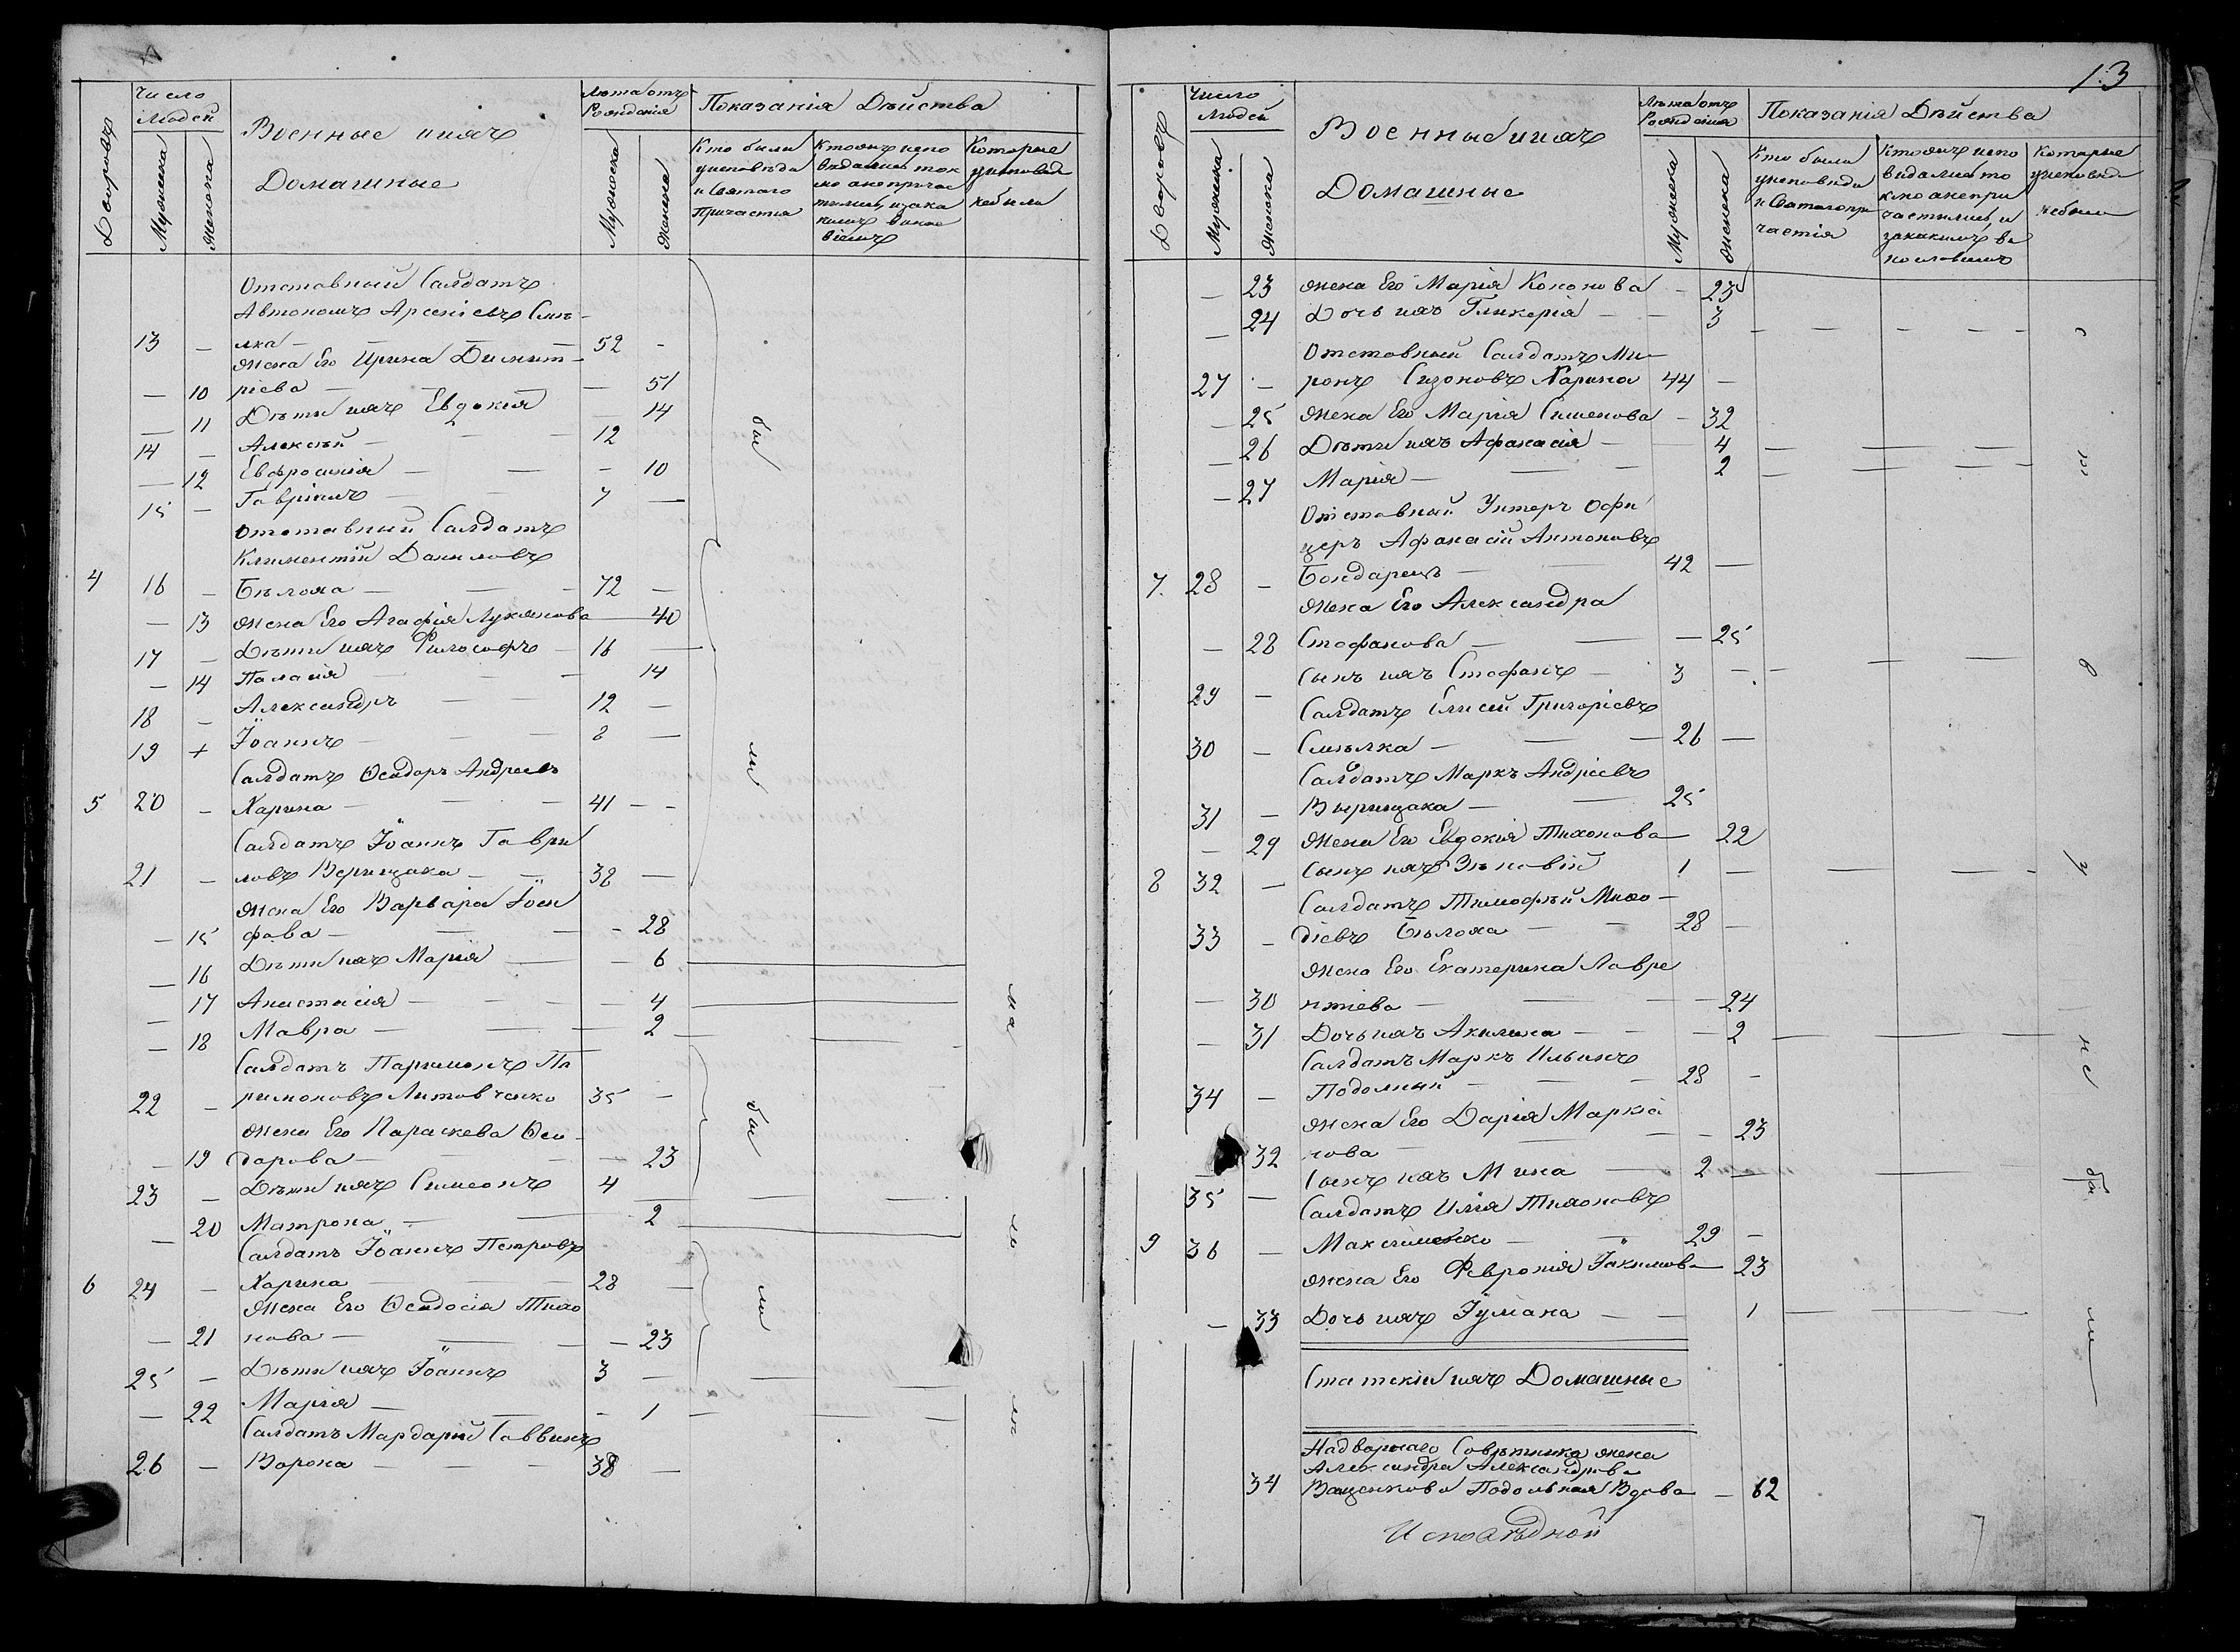 13
Дворовъ
Число Людей
Мужеска
Женска
Военные и ихъ
Домашные
Лѣта отъ Рожденія
Мужеска
Женска
Показанія Дѣйства
Кто были
уисповѣди
и Святаго
Причастія
Кто изъ
тилися, и за
Которые
уисповѣди
небыли
Отставный Салдатъ
Автономъ Арсеніевъ Смѣ-
13 — лка — 52 —
жена Его Ирина Димит-
— 10 ріева — 51
— 11 Дѣти ихъ Евдокія — 14
14 — Алексѣй — 12
— 12 Евфросинія — 10
15 — Гавріилъ — 7 —
Отставный Салдатъ
Климентій Даниловъ
4 16 — Бѣлоха — 72 —
— 13 жена Его Агафія Лукянова 40
17 — Дѣти ихъ Философъ — 16 —
— 14 Палагія — 14
18 — Александръ — 12 —
19 + Іоаннъ — 8 —
Салдатъ Ѳеидоръ Андреевъ
5 20 — Харина — 41 —
Салдатъ Іоаннъ Гаври
21 — ловъ Верещака — 38 —
жена Его Варвара Іоси
— 15 фова — 28
— 16 Дѣти ихъ Марія — 6
— 17 Анастасія — 4
— 18 Мавра — 2
Салдатъ Паримонъ Па
22 — римоновъ Литовченко 35 —
жена Его Параскева Ѳео-
— 19 дорова — 23
23 — Дѣти ихъ Симеонъ 4
— 20 Матрона — 2
Салдатъ Іоаннъ Петровъ
6 24 — Харина — 28 —
жена Его Ѳеодосія Тихо
— 21 нова — 23
25 — Дѣти ихъ Іоаннъ 3 —
— 22 Марія — 1
Салдатъ Мардарій Саввинъ
26 — Ворона — 38 —
бы
ли
бы
ли
Дворовъ
Число
Людей
Мужеска
Женска
Военные и ихъ
Домашные
Лѣта отъ
Рожденія
Мужеска
Женска
Показанія Дѣйства
Кто были
уисповѣди
и Святаго при
частія
Кто изъ испо
видались то
кмо непри
частились, и
Которые
уисповѣди
небыли
— 23 жена Его Марія Кононова — 23
— 24 Дочь ихъ Гликерія — 3
Отставный Салдатъ Ми-
27 — ронъ Сизоновъ Харина 44 —
— 25 жена Его Марія Сименова — 32
— 26 Дѣти ихъ Афанасія — 4
— 27 Марія — 2
Отставный Унтеръ Офи
церъ Афанасій Антоновъ
7 28 — Бондарець — 42 —
жена Его Александра
— 28 Стефанова — 25
29 — Сынъ ихъ Стефанъ — 3 —
Салдатъ Елисей Григоріевъ
30 — Смѣлка — 26 —
Салдатъ Маркъ Андріевъ
31 — Вырищака — 25
— 29 Жена Его Евдокія Тихонова 22
8 32 — Сынъ ихъ Зѣновій 1 —
Салдатъ Тимофѣй Мѣѳо-
33 — діевъ Бѣлоха — 28 —
жена Его Екатерина Лавре
— 30 нтіева — 24
— 31 Дочь ихъ Акилина — 2
Салдатъ Маркъ Ильинъ
34 — Подольный — 28 —
жена Его Дарія Маркіа
32 нова — 23
35 — Сынъ ихъ Мина — 2 —
Салдатъ Илія Тихоновъ
9 36 — Максименко — 29 —
жена Его Февронія Іакимова 23
— 33 Дочь ихъ Іуліана — 1
Статскіи ихъ Домашные
Надворнаго Совѣтника жена
Александра Александрова
34 Ващенкова Подольная Вдова — 62
Исповѣдной